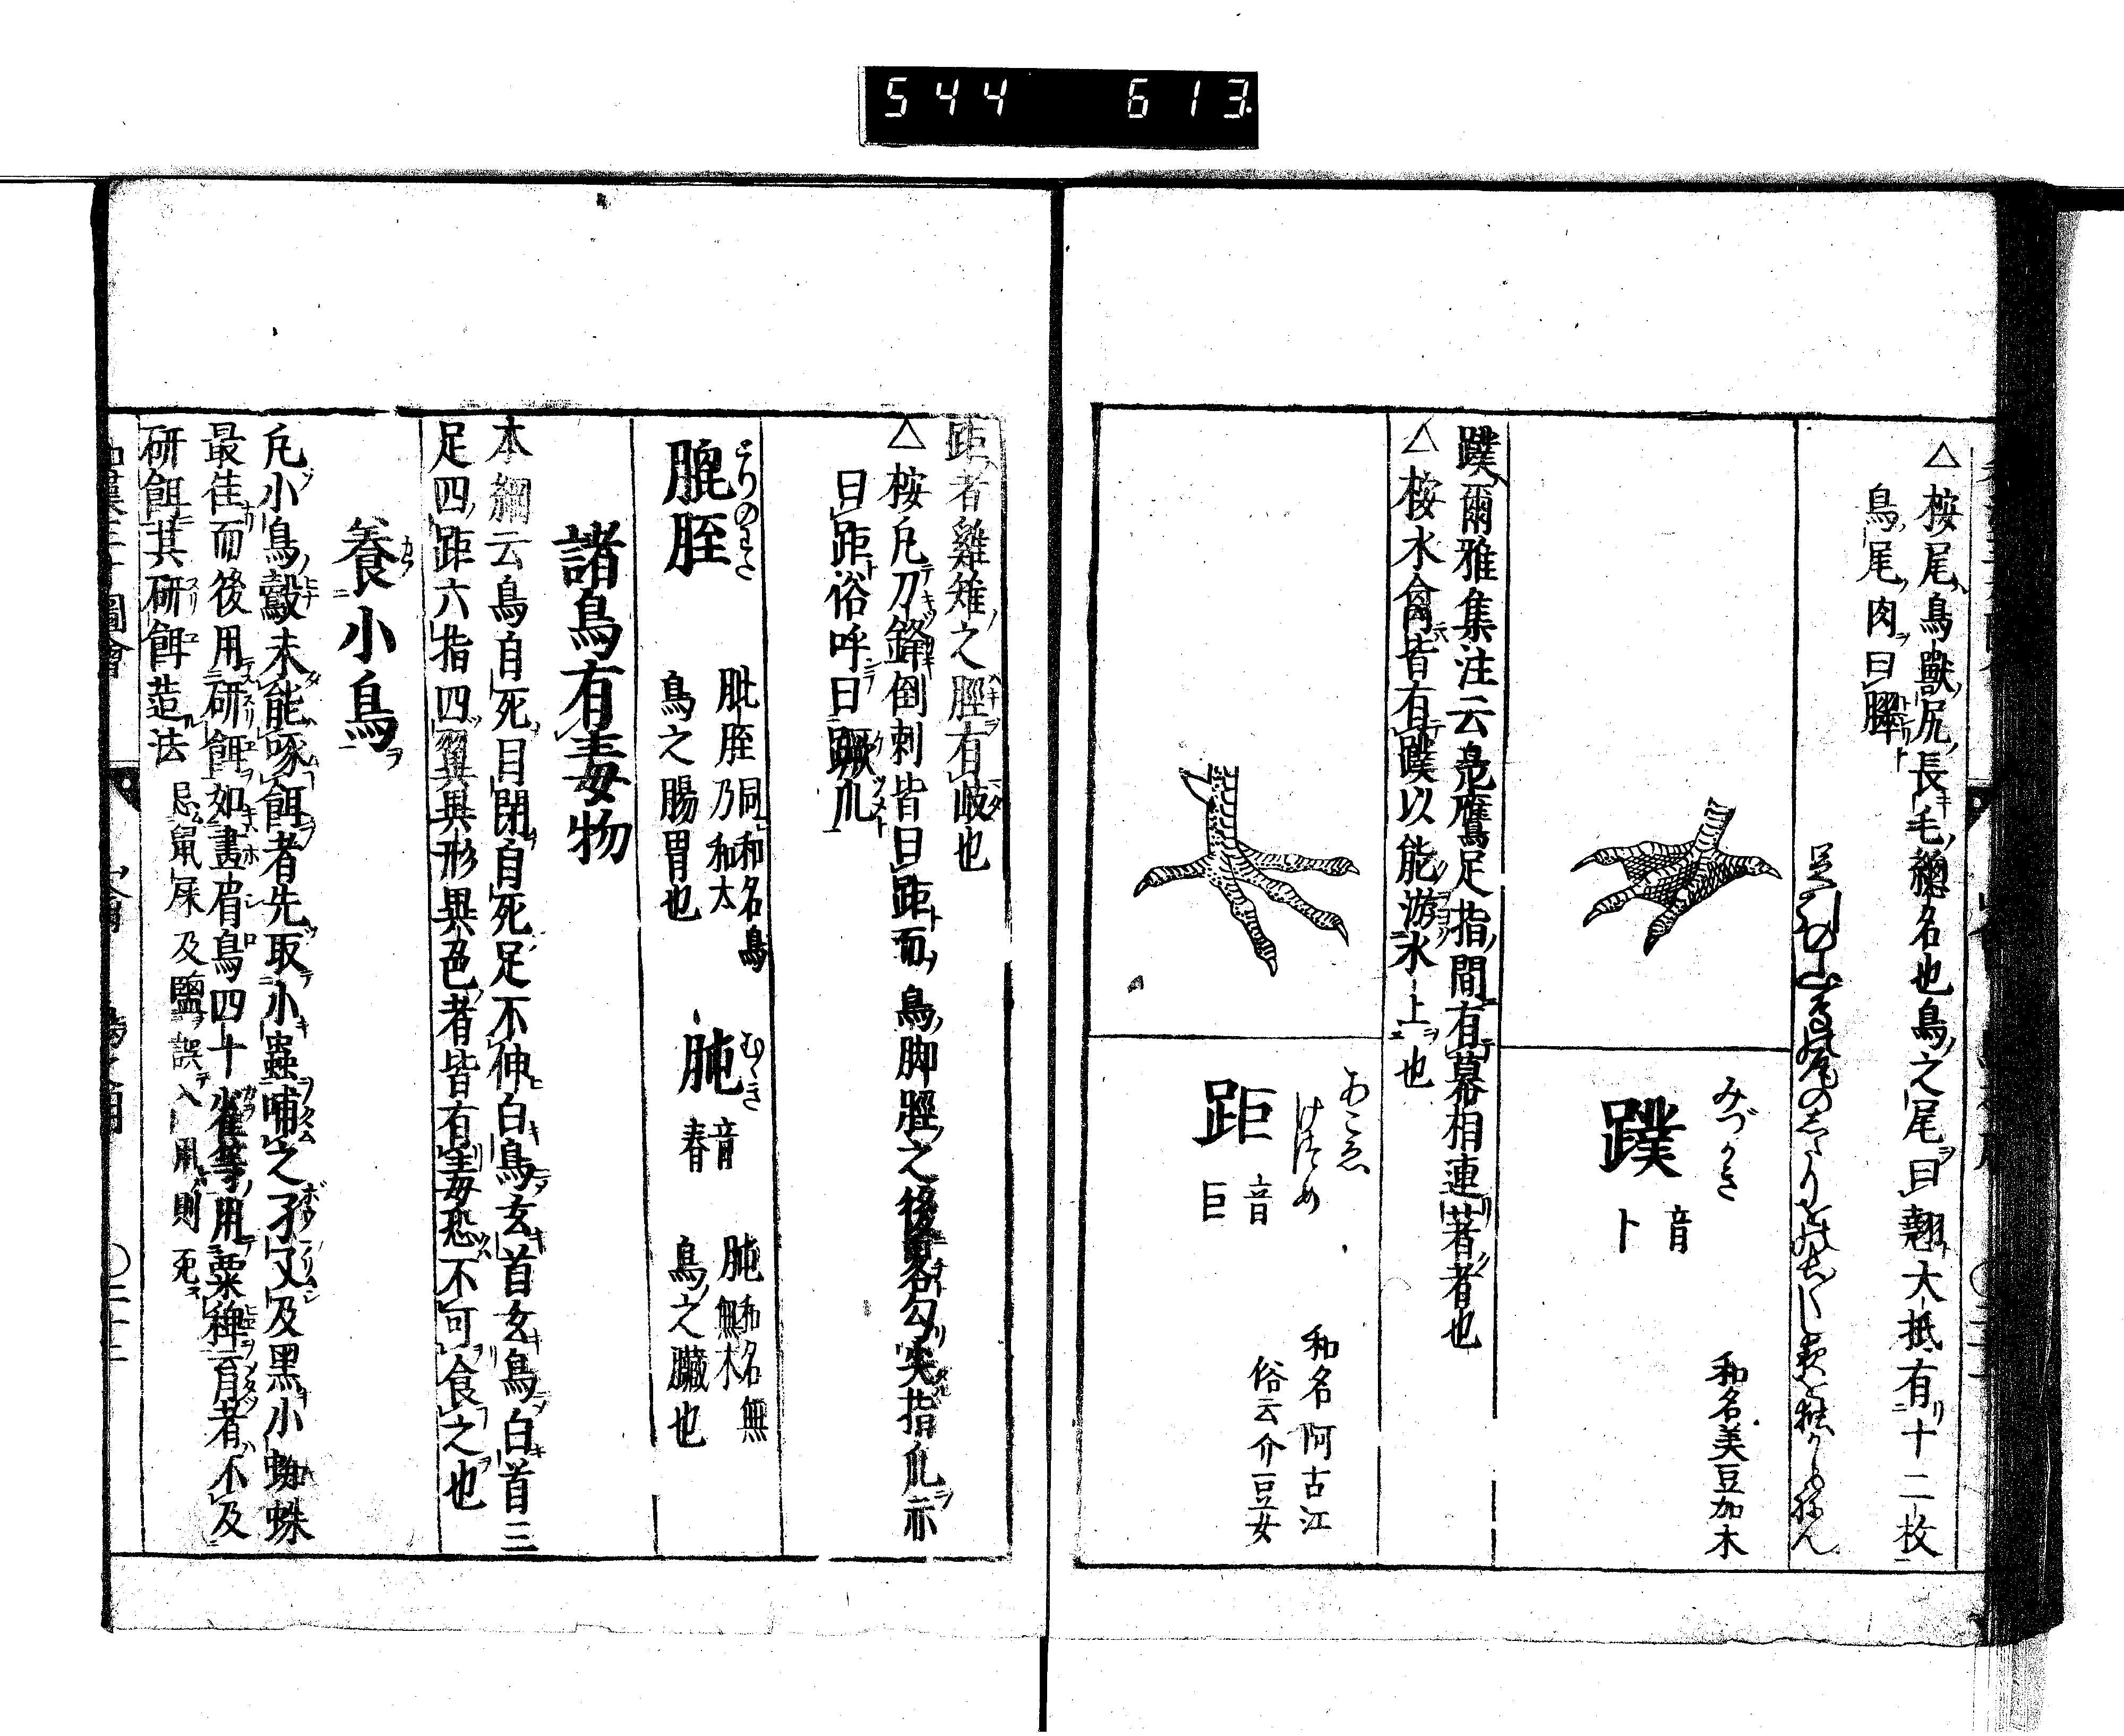 544 613
△桉尾鳥獸尻長毛總名也鳥之尾曰翹大抵有十二枚
鳥尾肉曰臎
足引の山鳥の尾のしたり尾のなか〳〵し夜を独かもねん
みづかき
蹼 音卜
和名美豆加木
蹼爾雅集注云鳧鴈足指間有幕相連著者也
△桉水禽皆有蹼以能游水上也
あこゑ
けづめ
距 音巨
和名阿古江
俗云介豆女
距者雞雉之脛有岐也
△桉凡刀鋒倒刺皆曰距而鳥脚脛之後畧勾尖指爪亦
曰距俗呼曰蹶爪
膍胵
肶胵同和名鳥
乃和太
鳥之腸胃也
肫 音春
むくき
肫和名無
無木
鳥之臟也
諸鳥有毒物
本綱云鳥自死目閉自死足不伸白鳥玄首玄鳥白首三
足四距六指四翼異形異色者皆有毒恐不可食之也
養小鳥
凡小鳥鷇未能啄餌者先取小蟲哺之孑孓及黑小蜘蛛
最佳而後用研餌如畫眉鳥四十雀等用粟稗育者不及
研餌其研餌造法
忌鼠屎及鹽誤入用則死